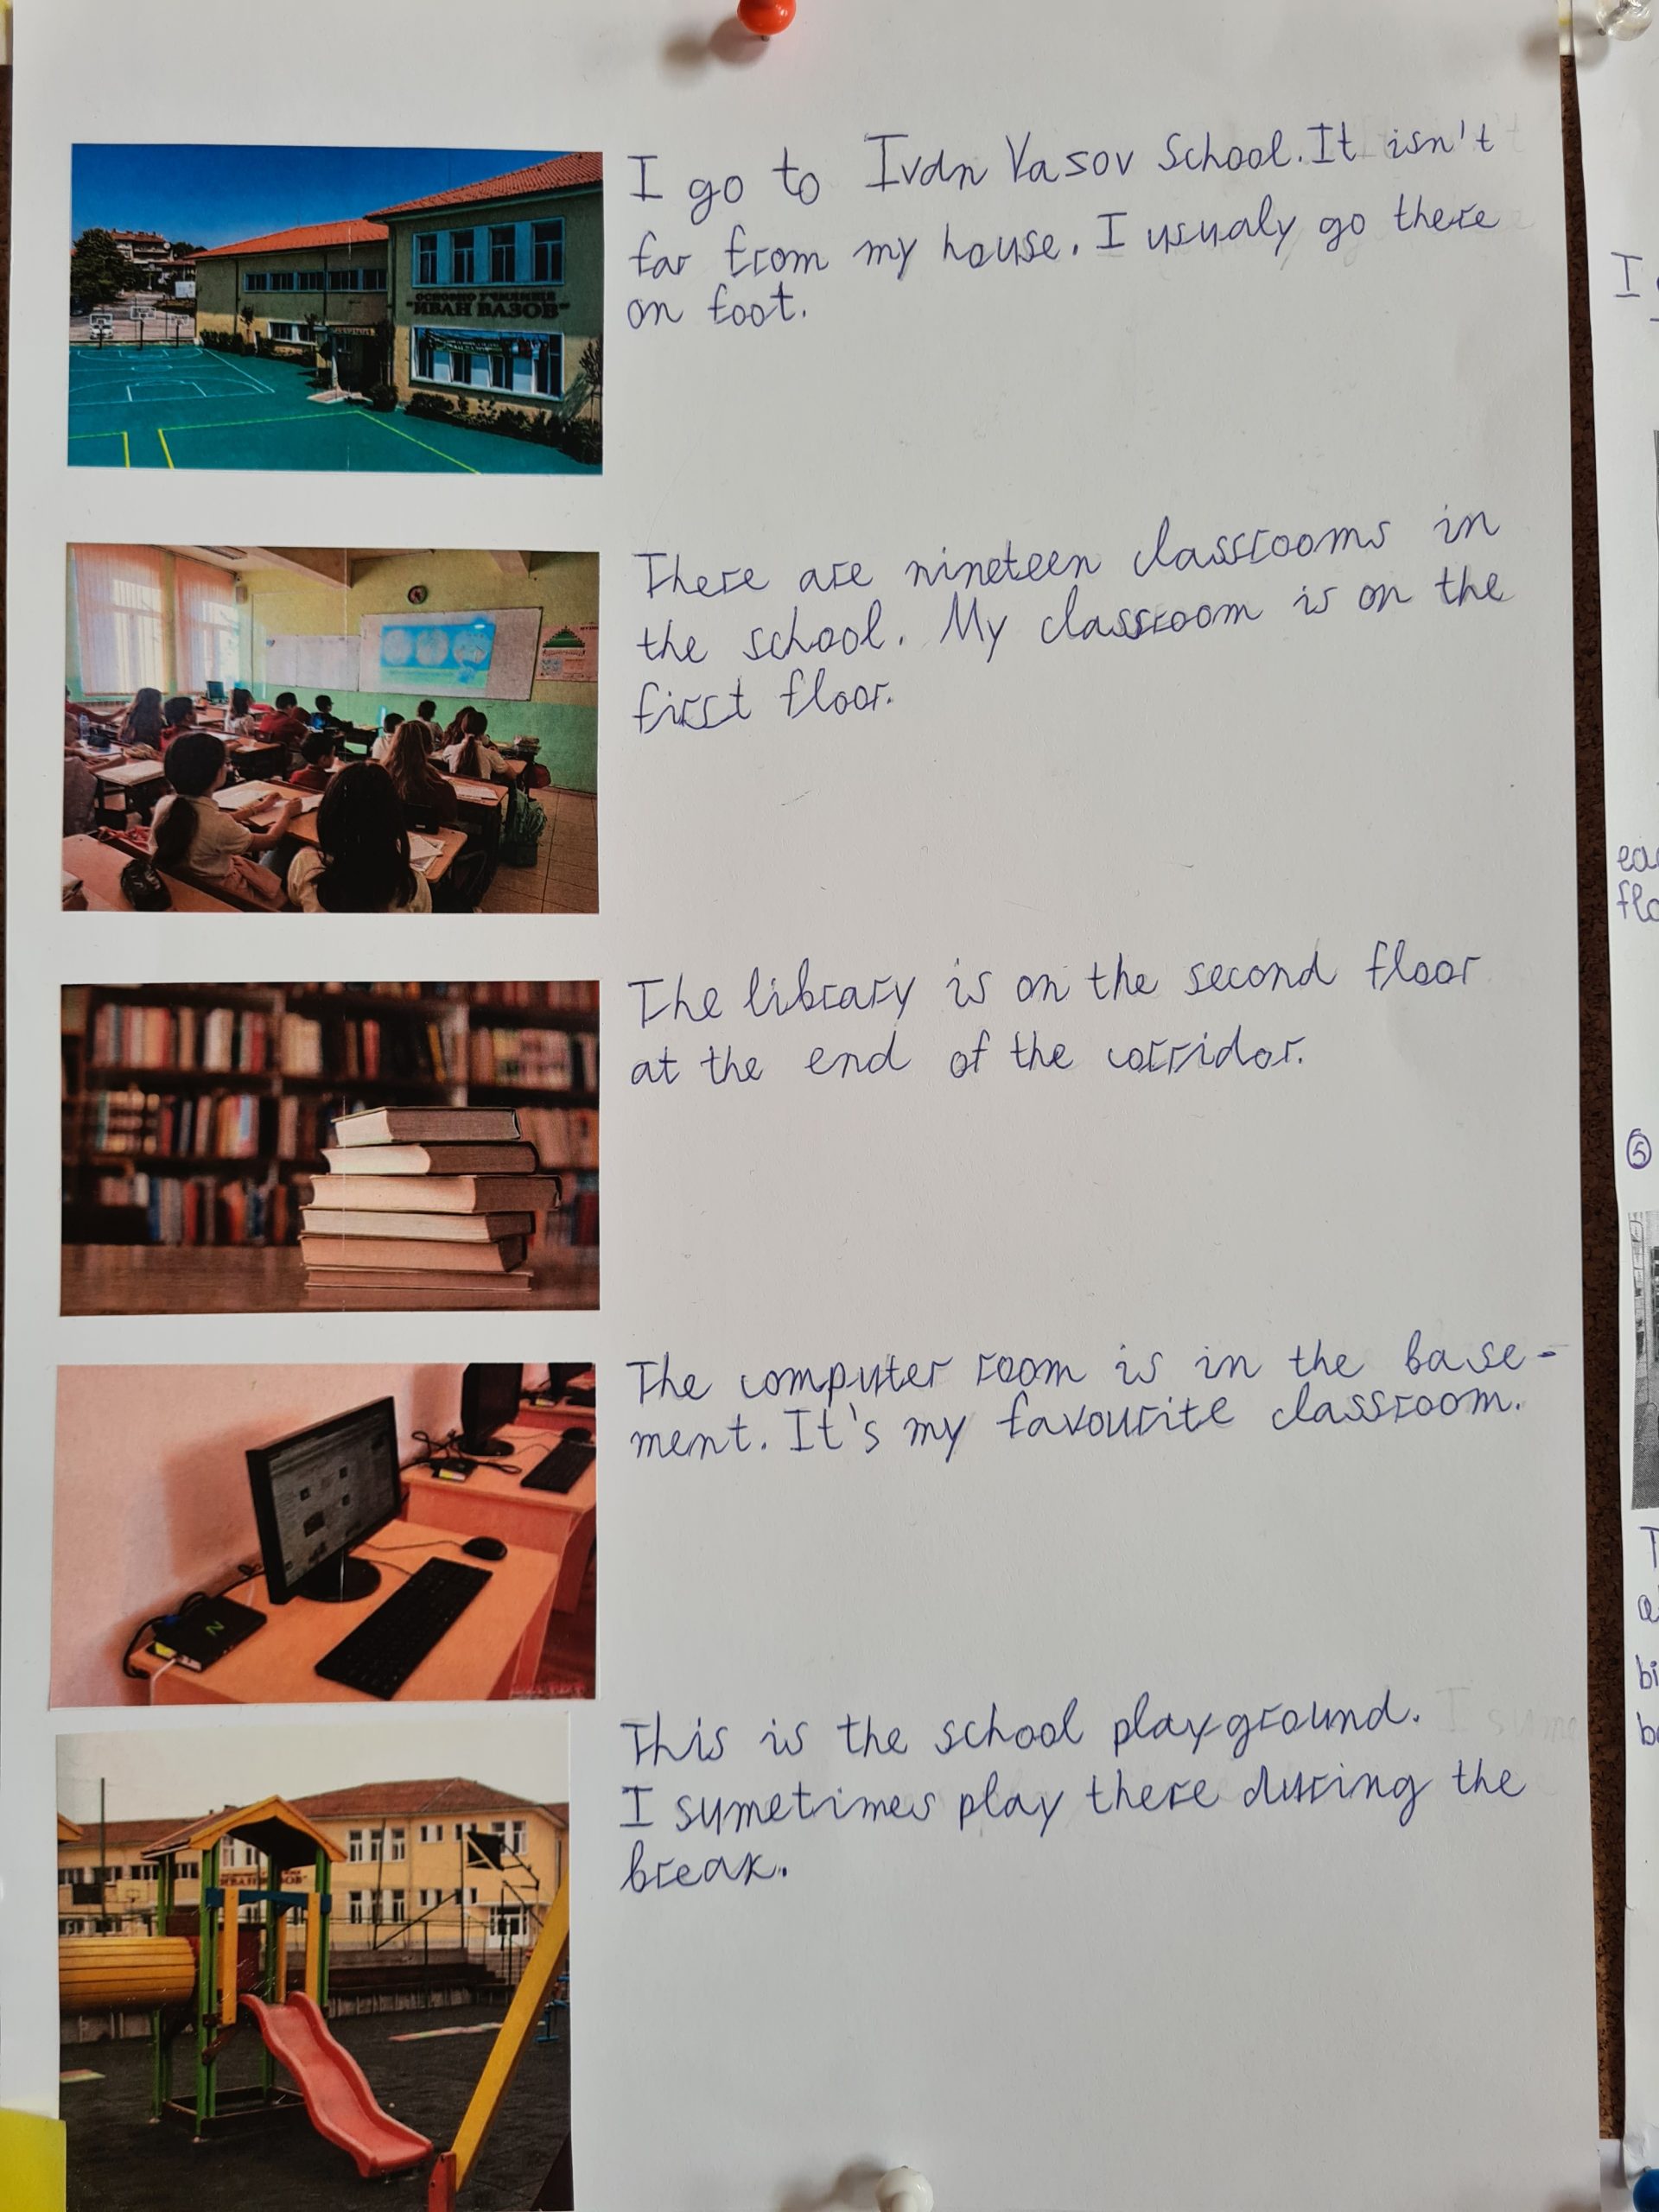 I go to Ivan Vasov School. It isn't
far from my house. I usualy go there
on foot.
ОСНОВНО УЧИЛИЩЕ
"ИВАН ВАЗОВ"
There are nineteen classrooms in
the school. My classroom is on the
first floor.
The library is on the second floor
at the end of the corridor.
The computer room is in the base-
ment. It's my favourite classroom.
This is the school playground.
I sumetimes play there during the
break.
I
5